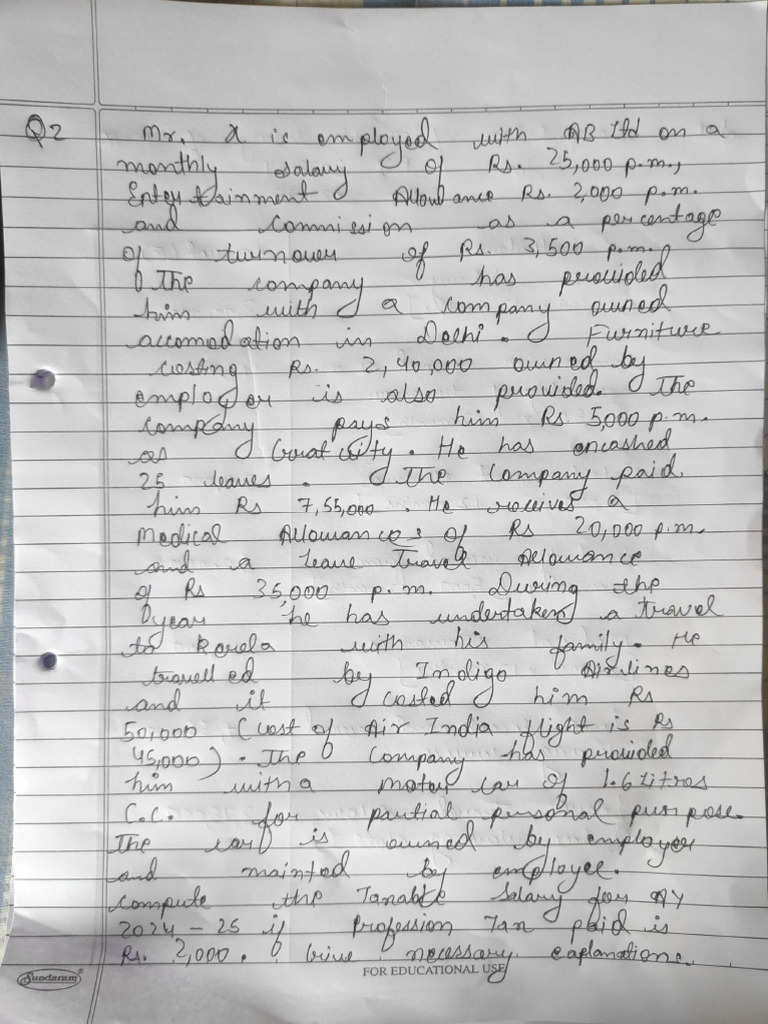 Q2 Mr. X is employed with AB ltd on a
monthly salary of Rs. 25,000 p.m.,
Entertainment Allowance Rs. 2,000 p.m.
and commission as a percentage
of turnover of Rs. 3,500 p.m.
The company has provided
him with a company owned
accomodation in Delhi. Furniture
costing Rs. 2,40,000 owned by
employer is also provided. The
company pays him Rs 5,000 p.m.
as Gratuity. He has encashed
25 leaves. The company paid
him Rs 7,55,000. He receives a
Medical Allowances of Rs 20,000 p.m.
and a leave Travel Allowance
of Rs 35,000 p.m. During the
year he has undertaken a travel
to Kerela with his family. He
travelled by Indigo Airlines
and it costed him Rs
50,000 (cost of Air India flight is Rs
45,000). The Company has provided
him with a motor car of 1.6 litres
C.C. for partial personal purpose.
The car is owned by employer
and mainted by employee.
compute the Taxable Salary for AY
2024-25 if Profession Tax paid is
Rs. 2,000. Give necessary explanations.
Sundaram®
FOR EDUCATIONAL USE